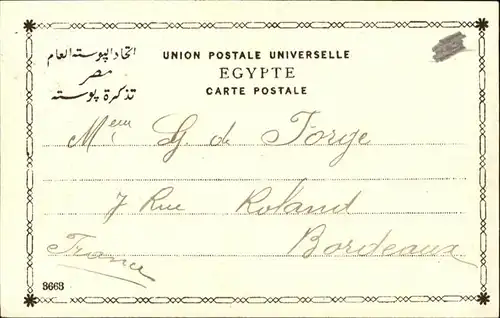 اتحاد البوسته العام
مصر
تذكرة بوسته
UNION POSTALE UNIVERSELLE
EGYPTE
CARTE POSTALE
Mem G. de Forge
7 Rue Roland
Bordeaux
France
3663